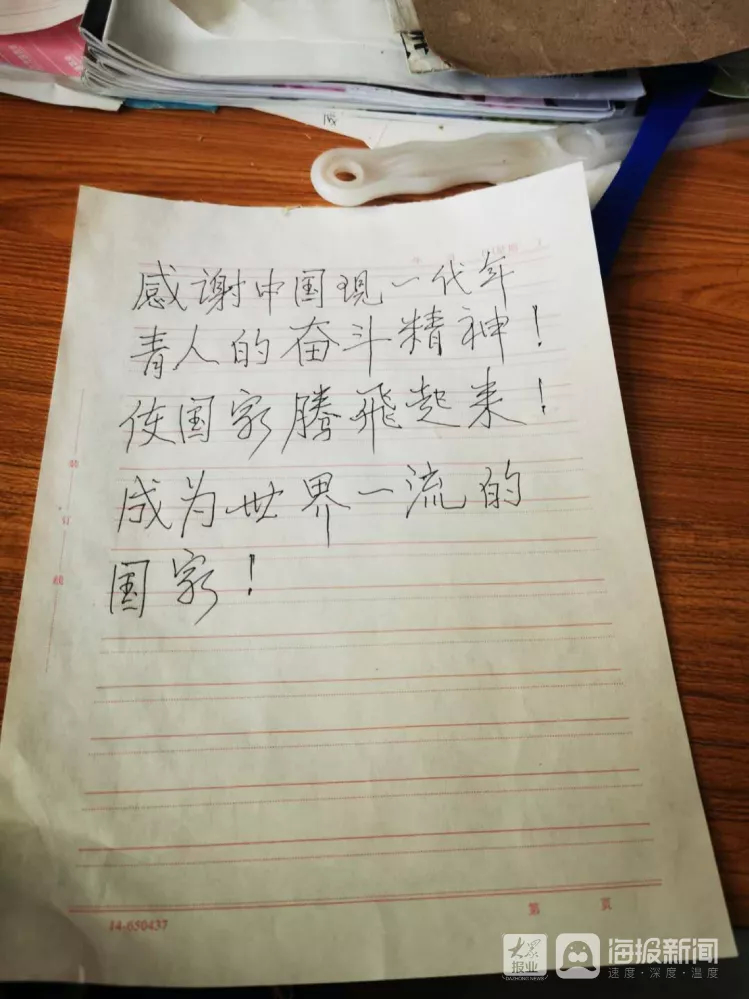 感谢中国现一代年
青人的奋斗精神！
使国家腾飛起来！
成为世界一流的
国家！
装
订
线
14-650437
第 页
大众报业
DAZHONG NEWS
海报新闻
速度·深度·温度